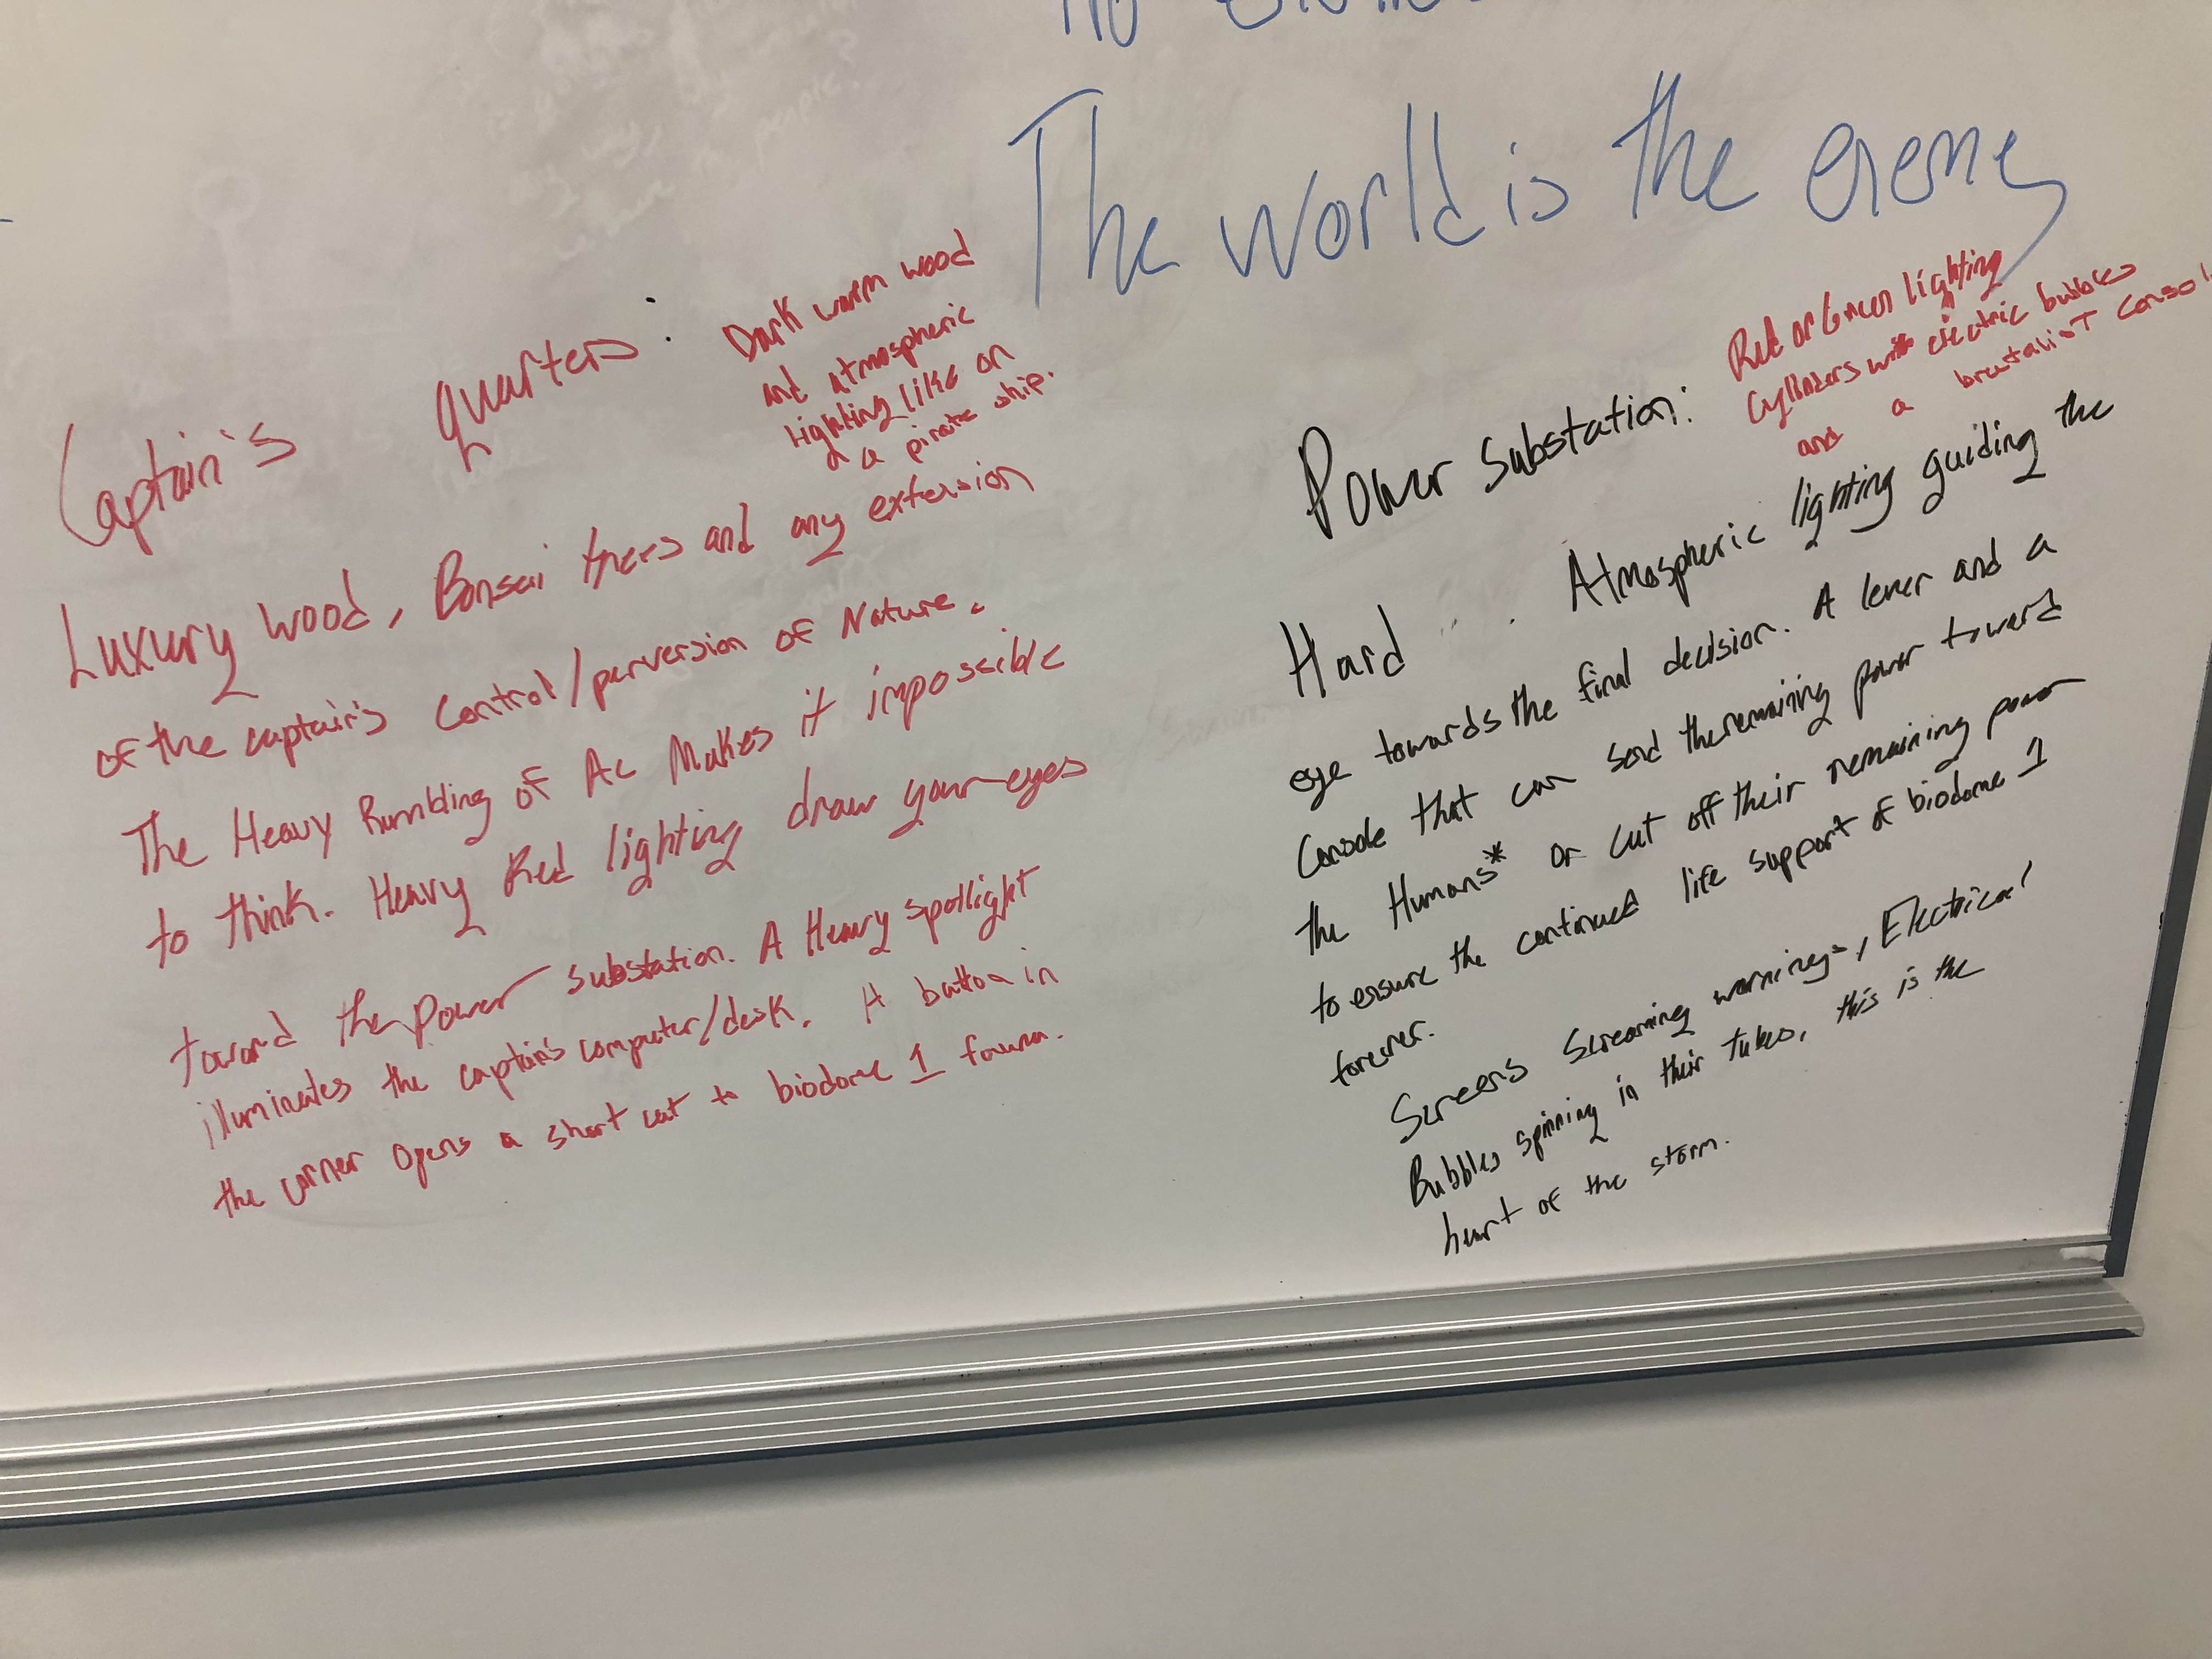 The world is the enemy
Captain's quarters:
Dark warm wood
and Atmospheric
lighting like on
a pirate ship.
Luxury wood, Bonsai trees and any extension
of the captain's control/perversion of Nature.
The Heavy Rumbling of AC Makes it impossible
to think. Heavy Red lighting draw your eyes
toward the power substation. A Heavy spotlight
illuminates the captain's computer/desk. A button in
the corner opens a short cut to biodome 1 fauna.
Power Substation:
Red or Green lighting
Cylinders with electric bubbles
and a brutalist
Hard Atmospheric lighting guiding the
eye towards the final decision. A lever and a
Console that can send the remaining power toward
the Humans* or cut off their remaining power
to ensure the continued life support of biodome 1
forever.
Screens Screaming warnings, Electrical
Bubbles spinning in their tubes, this is the
heart of the storm.